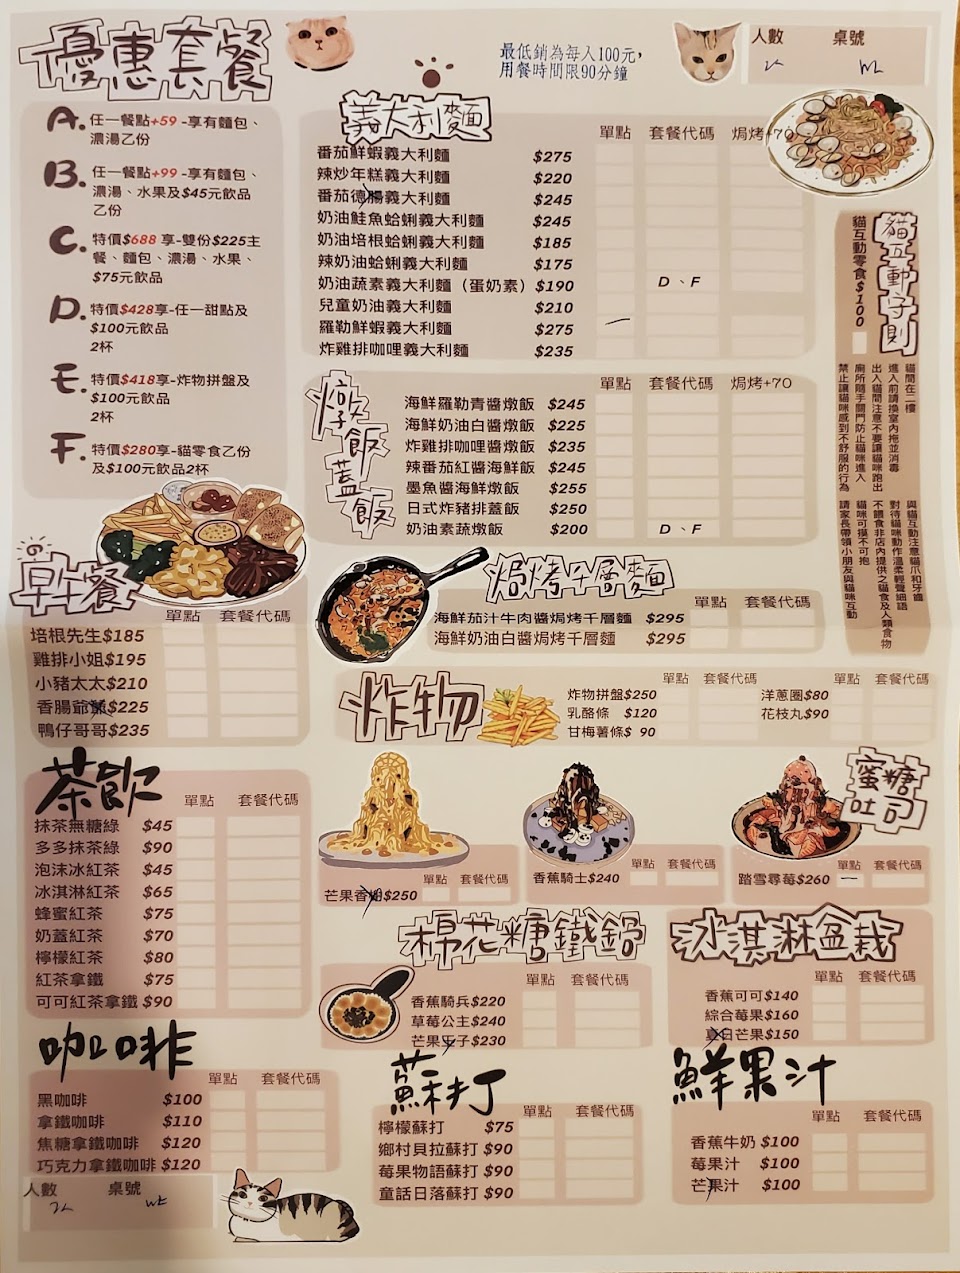 優惠套餐
最低銷為每人100元，
用餐時間限90分鐘
人數 桌號
A. 任一餐點+59 -享有麵包、
濃湯乙份
B. 任一餐點+99 -享有麵包、
濃湯、水果及$45元飲品
乙份
C. 特價$688 享-雙份$225主
餐、麵包、濃湯、水果、
$75元飲品
D. 特價$428享-任一甜點及
$100元飲品
2杯
E. 特價$418享-炸物拼盤及
$100元飲品
2杯
F. 特價$280享-貓零食乙份
及$100元飲品2杯
義大利麵
單點 套餐代碼 焗烤+70
番茄鮮蝦義大利麵 $275
辣炒年糕義大利麵 $220
番茄德腸義大利麵 $245
奶油鮭魚蛤蜊義大利麵 $245
奶油培根蛤蜊義大利麵 $185
辣奶油蛤蜊義大利麵 $175
奶油蔬素義大利麵（蛋奶素） $190 D、F
兒童奶油義大利麵 $210
羅勒鮮蝦義大利麵 $275
炸雞排咖哩義大利麵 $235
貓互動守則
貓互動零食$100
貓間在二樓
進入前請換室內拖並消毒
出入貓間注意不要讓貓咪跑出
廁所隨手關門防止貓咪進入
禁止讓貓咪感到不舒服的行為
與貓互動注意貓爪和牙齒
對待貓咪動作溫柔輕聲細語
不餵食非店內提供之貓食及人類食物
貓咪可摸不可抱
請家長帶領小朋友與貓咪互動
燉飯蓋飯
單點 套餐代碼 焗烤+70
海鮮羅勒青醬燉飯 $245
海鮮奶油白醬燉飯 $225
炸雞排咖哩醬燉飯 $235
辣番茄紅醬海鮮飯 $245
墨魚醬海鮮燉飯 $255
日式炸豬排蓋飯 $250
奶油素蔬燉飯 $200 D、F
早午餐
單點 套餐代碼
培根先生$185
雞排小姐$195
小豬太太$210
香腸爺爺$225
鴨仔哥哥$235
焗烤千層麵
單點 套餐代碼
海鮮茄汁牛肉醬焗烤千層麵 $295
海鮮奶油白醬焗烤千層麵 $295
炸物
單點 套餐代碼 單點 套餐代碼
炸物拼盤$250 洋蔥圈$80
乳酪條 $120 花枝丸$90
甘梅薯條$ 90
茶飲
單點 套餐代碼
抹茶無糖綠 $45
多多抹茶綠 $90
泡沫冰紅茶 $45
冰淇淋紅茶 $65
蜂蜜紅茶 $75
奶蓋紅茶 $70
檸檬紅茶 $80
紅茶拿鐵 $75
可可紅茶拿鐵 $90
蜜糖吐司
單點 套餐代碼
芒果香柚$250
單點 套餐代碼
香蕉騎士$240
單點 套餐代碼
踏雪尋莓$260
棉花糖鐵鍋
單點 套餐代碼
香蕉騎兵$220
草莓公主$240
芒果王子$230
冰淇淋盆栽
單點 套餐代碼
香蕉可可$140
綜合莓果$160
夏日芒果$150
咖啡
單點 套餐代碼
黑咖啡 $100
拿鐵咖啡 $110
焦糖拿鐵咖啡 $120
巧克力拿鐵咖啡 $120
蘇打
單點 套餐代碼
檸檬蘇打 $75
鄉村貝拉蘇打 $90
莓果物語蘇打 $90
童話日落蘇打 $90
鮮果汁
單點 套餐代碼
香蕉牛奶 $100
莓果汁 $100
芒果汁 $100
人數 桌號